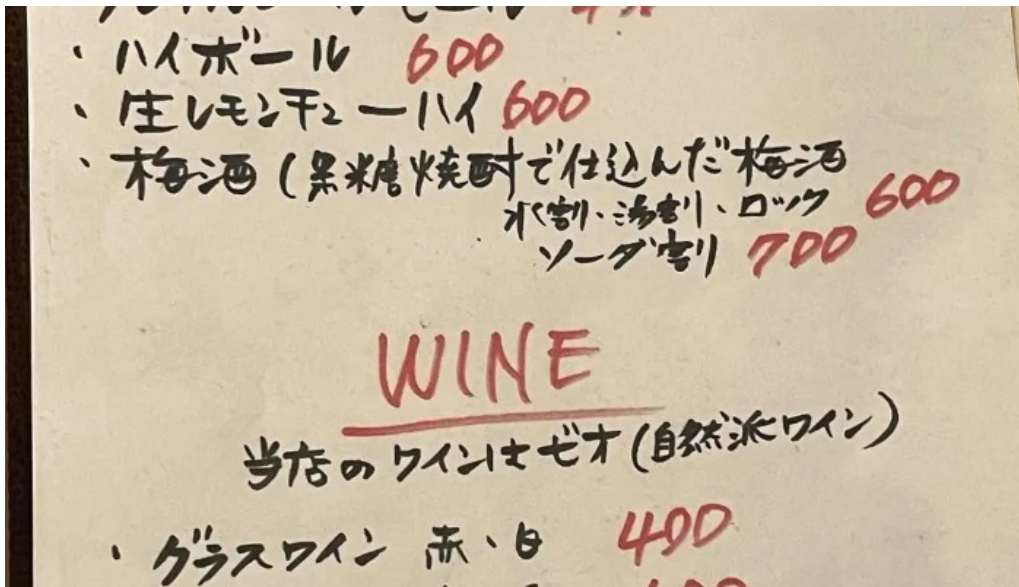 ・ハイボール 600
・生レモンチューハイ 600
・梅酒(黒糖焼酎で仕込んだ梅酒
水割・湯割り・ロック 600
ソーダ割り 700
WINE
当店のワインはビオ(自然派ワイン)
・グラスワイン 赤・白 400